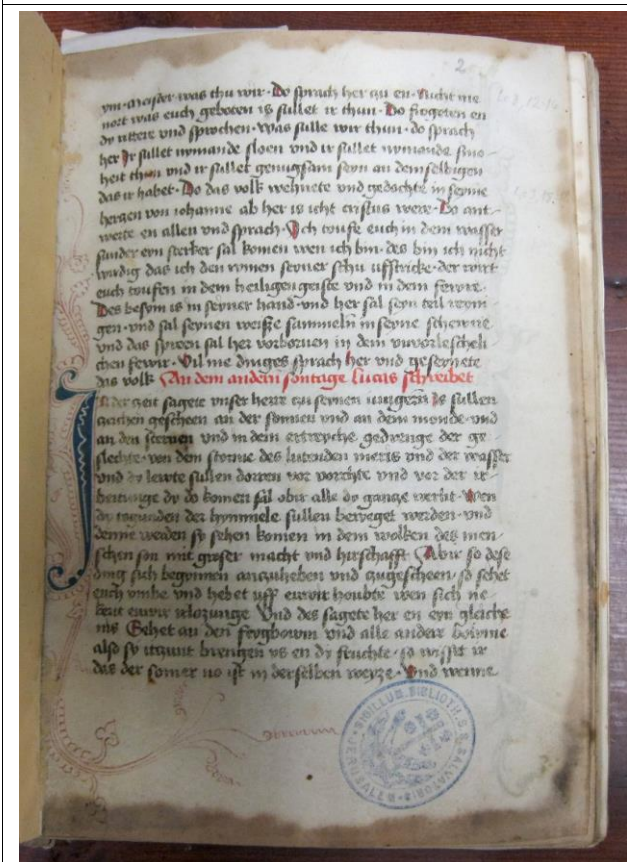 2
ym· meister was thu wir· Do sprach her czu en· Nicht me
wert was euch geboten is sullet ir thun· Do frogeten en
dy rittere vnd sprochen· was sulle wir thun· do sprach
her Ir sullet nymande sloen vnd ir sullet nymande smo-
heit thun vnd ir sullet genugsam seyn an demselbigen
das ir habet· Do das volk wehnete vnd gedochte in seyme
herczen von iohanne ab her is icht cristus were· Do ant-
werte en allen vnd sprach· Ich toufe euch in dem wasser
sunder eyn sterker sal komen wen ich bin· des bin ich nicht
wirdig das ich den rymen seyner schu uffstricke· der wirt
euch toufen in dem heiligen geiste vnd in dem fewre·
Des besym is in seyner hand· vnd her sal seyn tell reyni-
gen· vnd sal seynen weysse sammeln in seyne schewne
vnd das sprew sal her vorbornen in dem unvorlescheli
chen fewir· Vil me dinges sprach her vnd gesegnete
das volk An dem andern sontage lucas schreibet
In der czeit sagete vnser herre czu seynen iungern Is sullen
czeichen gescheen an der sonnen vnd an dem monde· vnd
an den sternen vnd in dem ertreyche gedrenge der ge-
slechte· von dem storme des lutenden meris vnd der wasser
vnd dy lewte sullen dorren vor vorchte vnd vor der ir-
beitunge dy do komen sal obir alle dy gancze werlt· Wen
dy togunden der hymmele sullen beweget werden· vnd
denne werden sy sehen komen in dem wolken des men-
schen son mit groser macht vnd hirschafft· Abir so dese
ding sich begynnen anczuheben vnd czugescheen· so sehet
euch vmbe vnd hebet uff euwir houbte wen sich ne-
hent euwir irlozunge Vnd des sagete her en eyn gleiche
nis Sehet an den feygbowm vnd alle andere boyme
also sy itczunt brengen vs en dy fruchte· so wisset ir
das der somer no ist in derselben weyze· Vnd wenne
SIGILLUM BIBLIOTH. S. SALVATORIS JERUSALEM